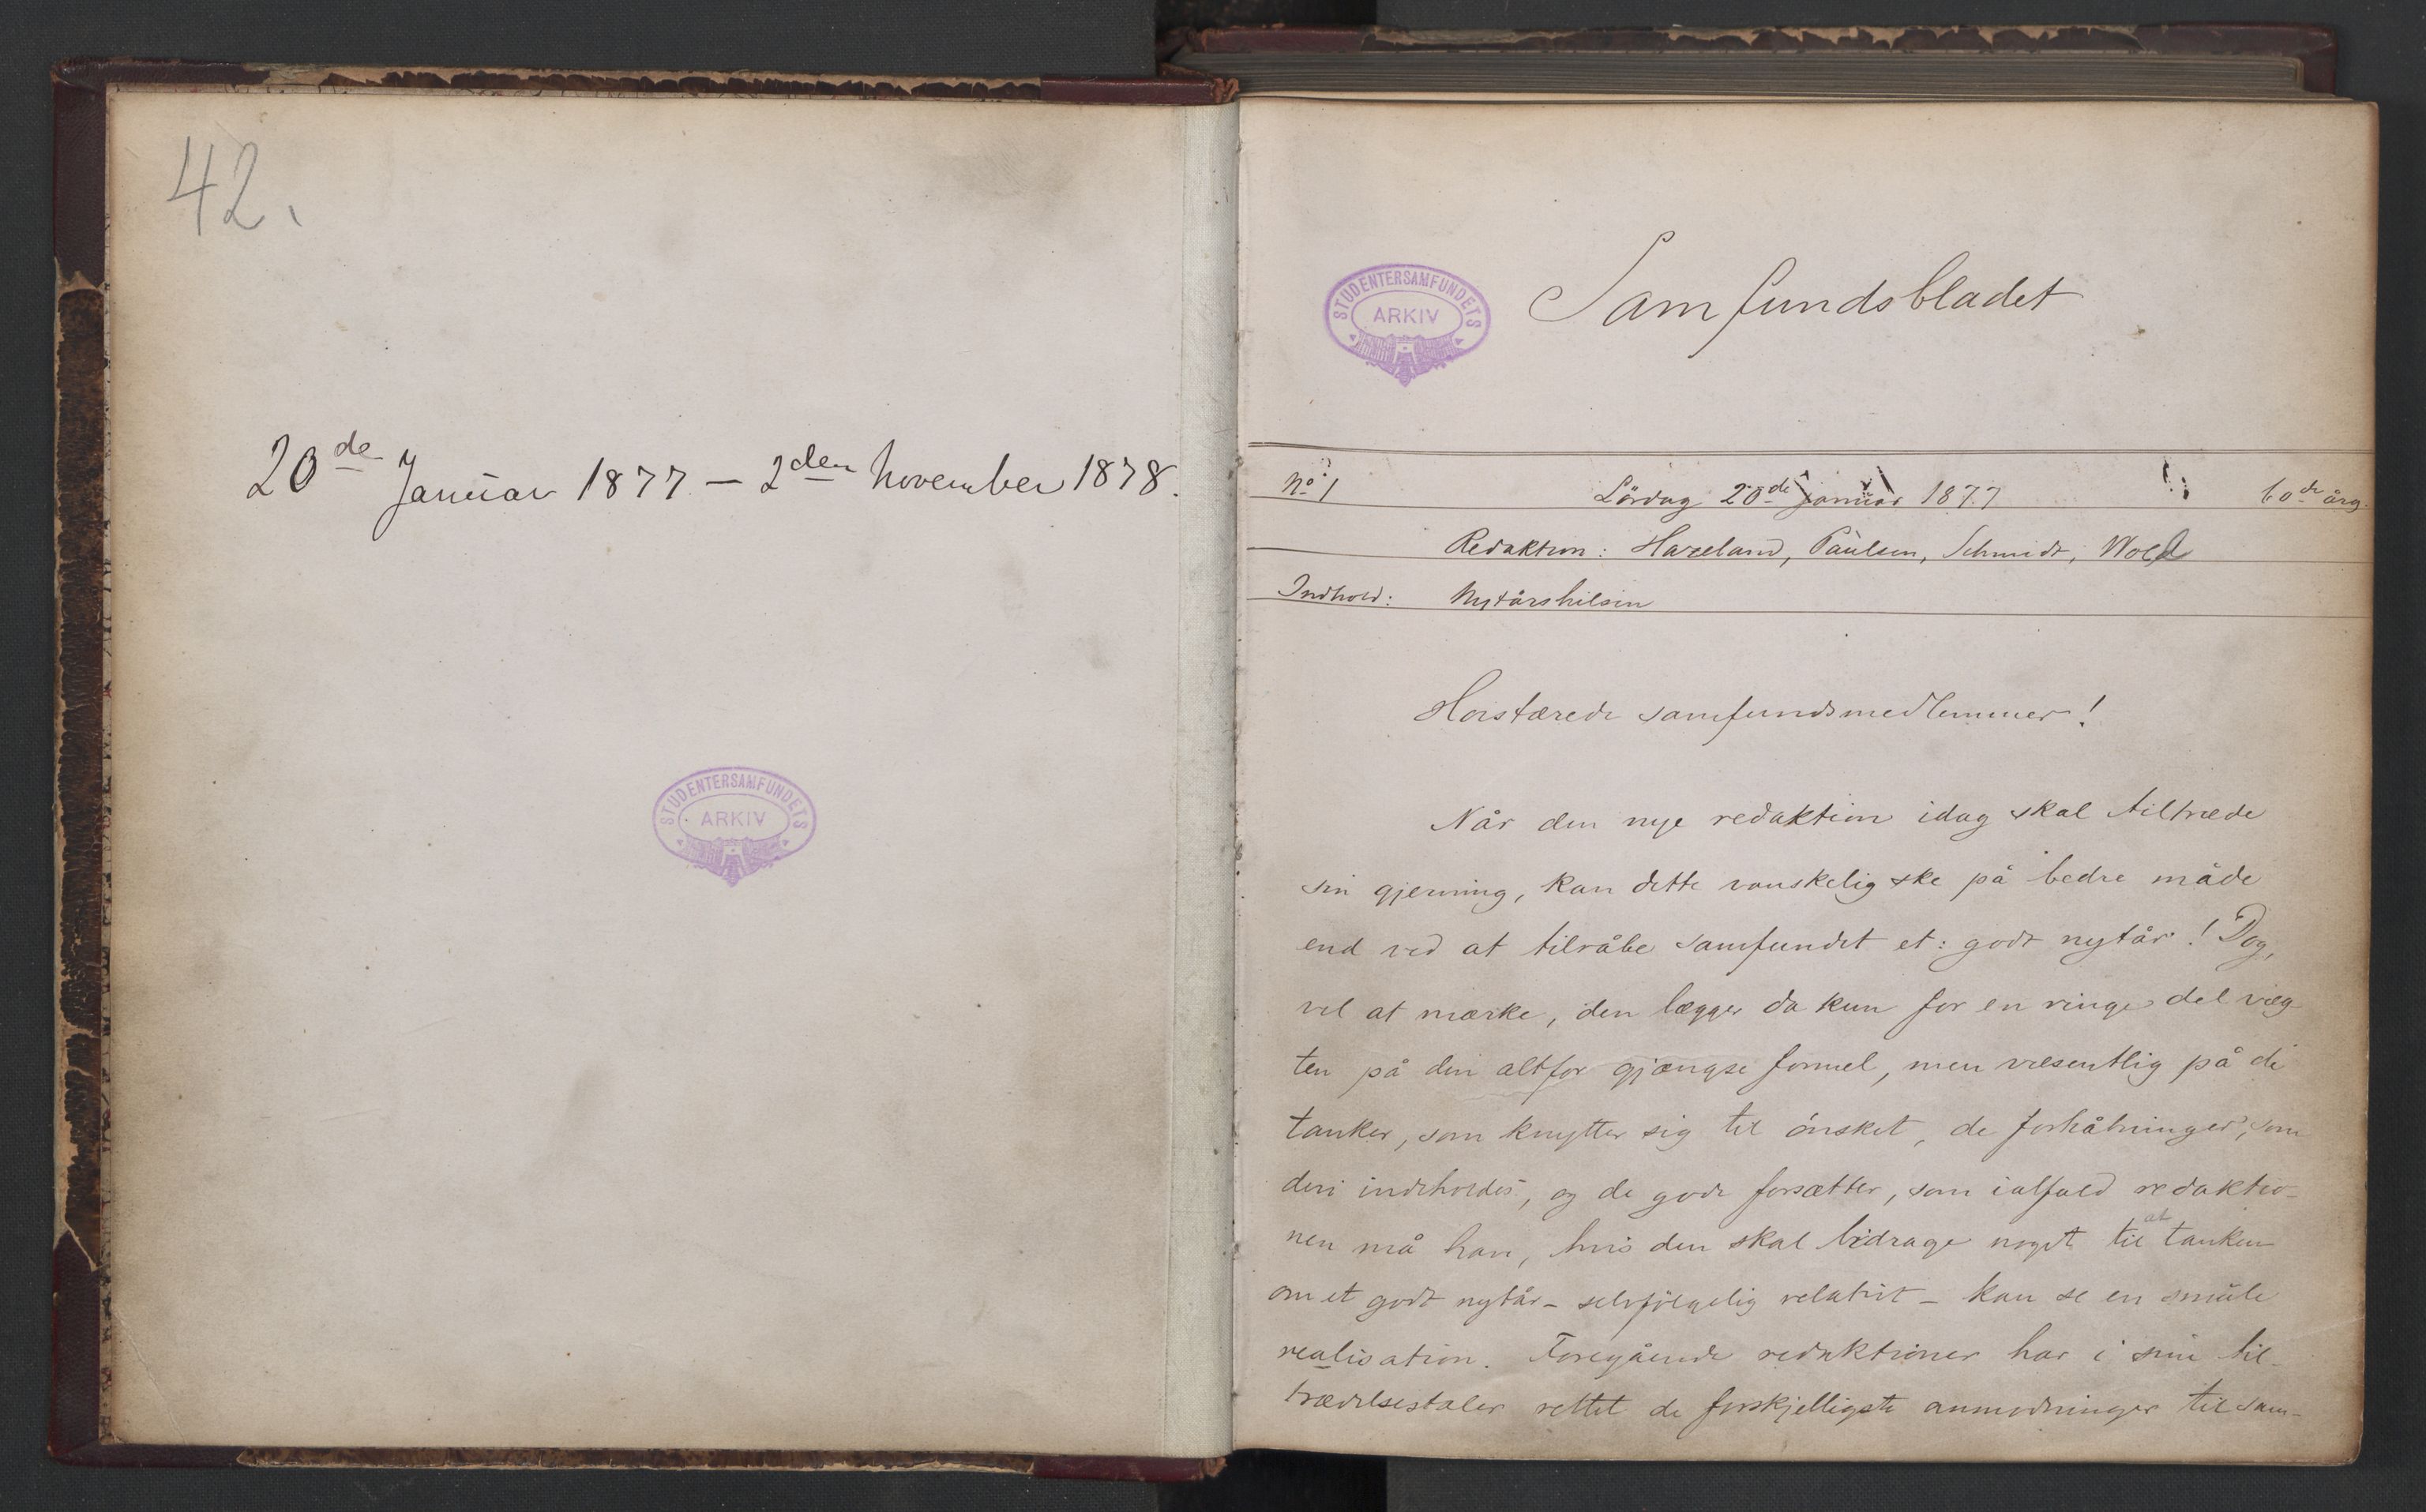 42.
20de Januar 1877 – 2den November 1878.
STUDENTERSAMFUNDETS
ARKIV
STUDENTERSAMFUNDETS
ARKIV
Samfundsbladet
No 1 Lördag 20de januar 1877 årg.
Redaktion: Hazeland, Paulsen, Schmidt, Wold
Indhold: Nytårshilsen
Höistærede samfundsmedlemmer!
Når den nye redaktion idag skal tiltræde
sin gjerning, kan dette vanskelig ske på bedre måde
end ved at tilråbe samfundet et: godt nytår! Dog,
vel at mærke, den lægger da kun for en ringe del væg
ten på den altfor gjængse formel, men væsentlig på de
tanker, som knytter sig til önsket, de forhåbninger, som
deri indeholdes, og de gode forsætter, som ialfald redaktio-
nen må have, hvis den skal bidrage noget til at tanken
om et godt nytår – selvfölgelig relativt – kan se en smule
realisation. Foregående redaktioner har i sine til-
trædelsestaler rettet de forskjelligste anmodninger til sam-